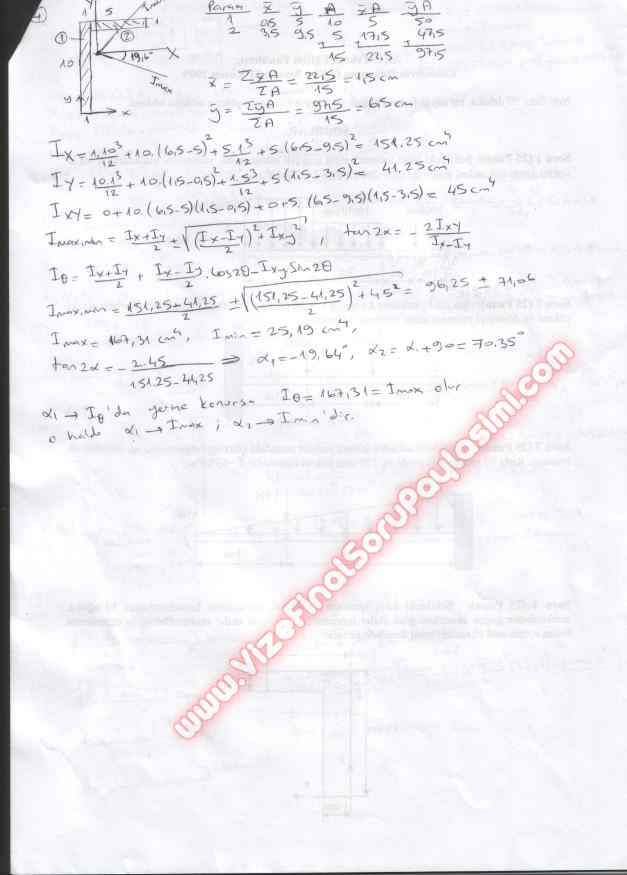 4)
y 5 1
① ② Imin
10 19,6° x
Imax
y
1 x
Parça x̄ ȳ A x̄A ȳA
1 0,5 5 10 5 50
2 3,5 9,5 5 17,5 47,5
15 22,5 97,5
x̄ = Σx̄A/ΣA = 22,5/15 = 1,5 cm
ȳ = ΣȳA/ΣA = 97,5/15 = 6,5 cm
Ix = 1.10³/12 + 10.(6,5-5)² + 5.1³/12 + 5(6,5-9,5)² = 151,25 cm⁴
Iy = 10.1³/12 + 10.(1,5-0,5)² + 1.5³/12 + 5(1,5-3,5)² = 41,25 cm⁴
Ixy = 0+10.(6,5-5)(1,5-0,5)+0+5.(6,5-9,5)(1,5-3,5) = 45 cm⁴
Imax,min = Ix+Iy/2 ± √(Ix-Iy/2)² + Ixy² , tan2α = - 2Ixy/Ix-Iy
Iθ = Ix+Iy/2 + Ix-Iy/2 . cos2θ - Ixy Sin2θ
Imax,min = 151,25+41,25/2 ± √(151,25-41,25/2)² + 45² = 96,25 ± 71,06
Imax = 167,31 cm⁴, Imin = 25,19 cm⁴,
tan2α = - 2.45/151.25-41,25 ⇒ α₁ = -19,64°, α₂ = α₁+90 = 70.35°
α₁ → Iθ'da yerine konursa Iθ = 167,31 = Imax olur
o halde α₁ → Imax ; α₂ → Imin'dir.
www.VizeFinalSoruPaylasimi.com